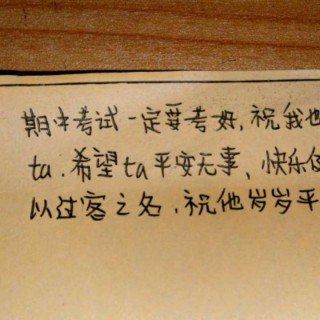 期中考试一定要考好,祝我也
ta.希望ta平安无事、快乐
以过客之名,祝他岁岁平